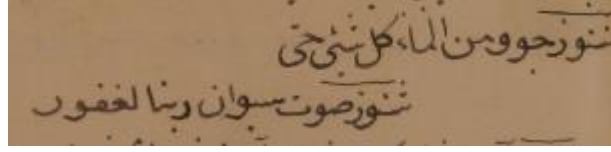 شنوز جو ومن الماء كل شئ حى
شنوز صوت سوان ربنا لغفور